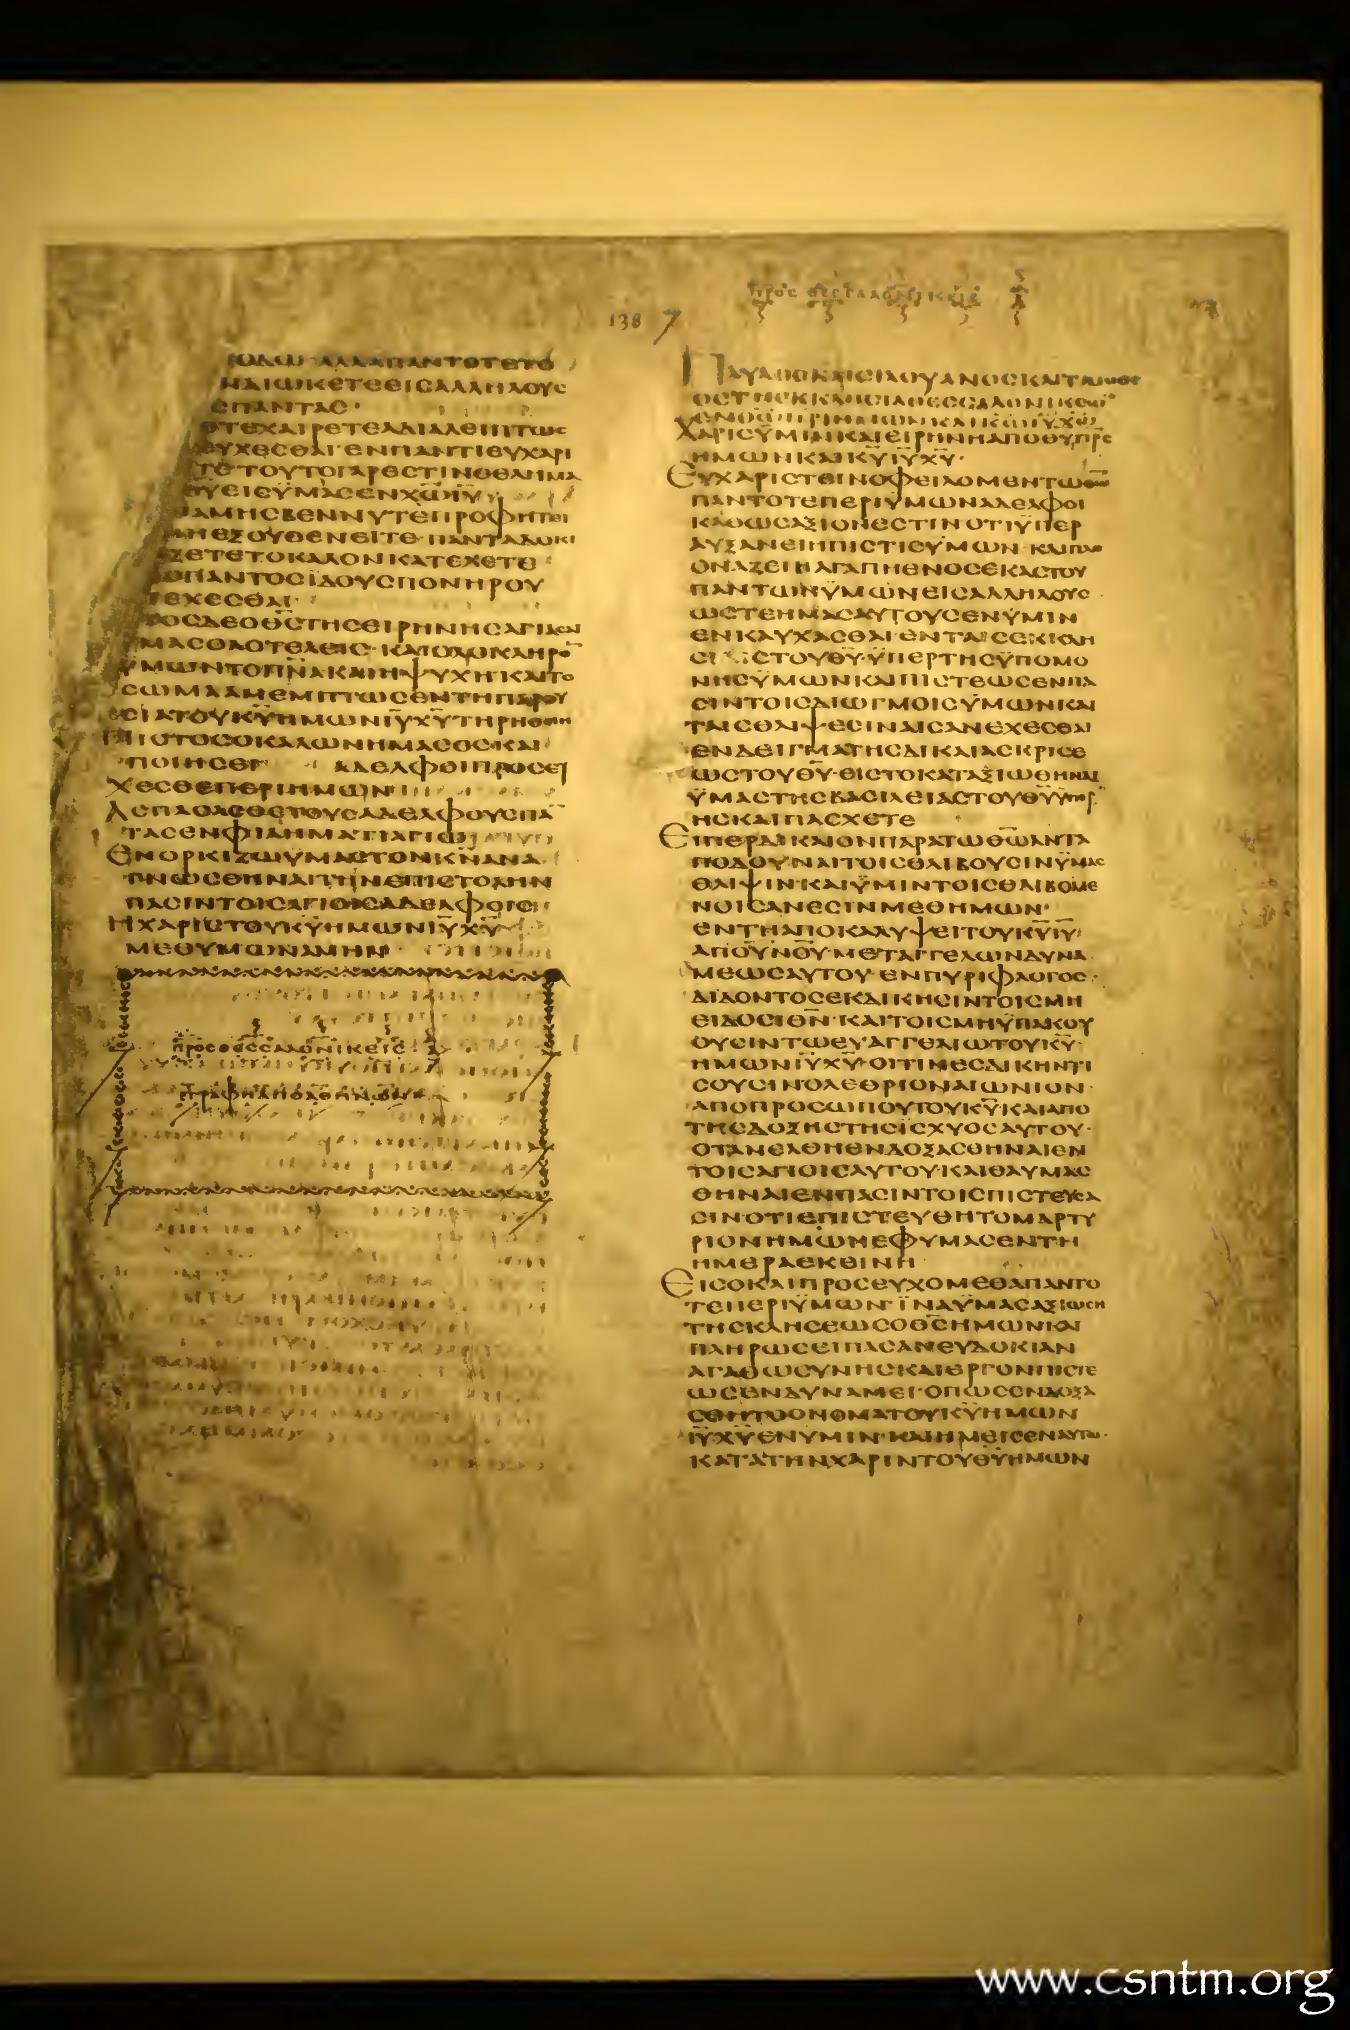 προς θεσσαλονικεις
138
ΑΛΛΑΠΑΝΤΟΤΕΤΟ
ΔΙΩΚΕΤΕΕΙCΑΛΛΗΛΟΥC
ΠΑΝΤΑC·
ΤΕΧΑΙΡΕΤΕΑΔΙΑΛΕΙΠΤΩC
ΕΥΧΕCΘΑΙ·ΕΝΠΑΝΤΙΕΥΧΑΡΙ
ΤΕ·ΤΟΥΤΟΓΑΡΕCΤΙΝΘΕΛΗΜΑ
ΕΙCΫΜΑCΕΝΧΩΙΥ
ΜΗCΒΕΝΝΥΤΕ·ΠΡΟΦΗΤΕΙ
ΜΗΕΞΟΥΘΕΝΕΙΤΕ·ΠΑΝΤΑΔΟΚΙ
ΖΕΤΕΤΟΚΑΛΟΝΚΑΤΕΧΕΤΕ
ΠΑΝΤΟCΪΔΟΥCΠΟΝΗΡΟΥ
ΕΧΕCΘΑΙ·
ΟCΔΕΟΘCΤΗCΕΙΡΗΝΗCΑΓΙΑCΑΙ
ΜΑCΟΛΟΤΕΛΕΙC·ΚΑΙΟΛΟΚΛΗΡΟ
ΫΜΩΝΤΟΠΝΑΚΑΙΗΨΥΧΗ·ΚΑΙΤΟ
CΩΜΑΑΜΕΜΠΤΩCΕΝΤΗΠΑΡΟΥ
CΙΑΤΟΥΚΥΗΜΩΝΙΥΧΥΤΗΡΗΘΕΙΗ
ΠΙCΤΟCΟΚΑΛΩΝΗΜΑCΟCΚΑΙ
ΠΟΙΗCΕΙ ΑΔΕΛΦΟΙΠΡΟCΕΥ
ΧΕCΘΕΠΕΡΙΗΜΩΝ
ΑCΠΑCΑCΘΕΤΟΥCΑΔΕΛΦΟΥCΠΑ
ΤΑCΕΝΦΙΛΗΜΑΤΙΑΓΙΩ
ΕΝΟΡΚΙΖΩΫΜΑCΤΟΝΚΝΑΝΑ
ΓΝΩCΘΗΝΑΙΤΗΝΕΠΙCΤΟΛΗΝ
ΠΑCΙΝΤΟΙCΑΓΙΟΙCΑΔΕΛΦΟΙC
ΗΧΑΡΙCΤΟΥΚΥΗΜΩΝΙΥΧΥ
ΜΕΘΥΜΩΝΑΜΗΝ
προςθεςςαλονικεις
ΠΑΥΛΟCΚΑΙCΙΛΟΥΑΝΟCΚΑΙΤΙΜΟΘΕ
ΟCΤΗΕΚΚΛΗCΙΑΘΕCCΑΛΟΝΙΚΕΩ
ΕΝΘΩΠΡΙΗΜΩΝΚΑΙΚΩΙΥΧΩ
ΧΑΡΙCΫΜΙΝΚΑΙΕΙΡΗΝΗΑΠΟΘΥΠΡC
ΗΜΩΝΚΑΙΚΥΙΥΧΥ·
ΕΥΧΑΡΙCΤΕΙΝΟΦΕΙΛΟΜΕΝΤΩΘΩ
ΠΑΝΤΟΤΕΠΕΡΙΫΜΩΝΑΔΕΛΦΟΙ
ΚΑΘΩCΑΞΙΟΝΕCΤΙΝΟΤΙΫΠΕΡ
ΑΥΞΑΝΕΙΗΠΙCΤΙCΫΜΩΝ·ΚΑΙΠΛΕ
ΟΝΑΖΕΙΗΑΓΑΠΗΕΝΟCΕΚΑCΤΟΥ
ΠΑΝΤΩΝΫΜΩΝΕΙCΑΛΛΗΛΟΥC
ΩCΤΕΗΜΑCΑΥΤΟΥCΕΝΫΜΙΝ
ΕΝΚΑΥΧΑCΘΑΙ·ΕΝΤΑΙCΕΚΚΛΗ
CΤΟΥΘΥ·ΫΠΕΡΤΗCΫΠΟΜΟ
ΝΗCΫΜΩΝΚΑΙΠΙCΤΕΩCΕΝΠΑ
CΙΝΤΟΙCΔΙΩΓΜΟΙCΫΜΩΝΚΑΙ
ΤΑΙCΘΛΙΨΕCΙΝΑΙCΑΝΕΧΕCΘΑΙ
ΕΝΔΕΙΓΜΑΤΗCΔΙΚΑΙΑCΚΡΙCΕ
ΩCΤΟΥΘΥ·ΕΙCΤΟΚΑΤΑΞΙΩΘΗΝΑΙ
ΫΜΑCΤΗCΒΑCΙΛΕΙΑCΤΟΥΘΥΫΠΕΡ
ΗCΚΑΙΠΑCΧΕΤΕ
ΕΙΠΕΡΔΙΚΑΙΟΝΠΑΡΑΤΩΘΩΑΝΤΑ
ΠΟΔΟΥΝΑΙΤΟΙCΘΛΙΒΟΥCΙΝΫΜΑC
ΘΛΙΨΙΝ·ΚΑΙΫΜΙΝΤΟΙCΘΛΙΒΟΜΕ
ΝΟΙCΑΝΕCΙΝΜΕΘΗΜΩΝ·
ΕΝΤΗΑΠΟΚΑΛΥΨΕΙΤΟΥΚΥΙΥ
ΑΠΟΥΝΟΥ·ΜΕΤΑΓΓΕΛΩΝΔΥΝΑ
ΜΕΩCΑΥΤΟΥ·ΕΝΠΥΡΙΦΛΟΓΟC·
ΔΙΔΟΝΤΟCΕΚΔΙΚΗCΙΝΤΟΙCΜΗ
ΕΙΔΟCΙΘΝ·ΚΑΙΤΟΙCΜΗΫΠΑΚΟΥ
ΟΥCΙΝΤΩΕΥΑΓΓΕΛΙΩΤΟΥΚΥ·
ΗΜΩΝΙΥΧΥ·ΟΙΤΙΝΕCΔΙΚΗΝΤΙ
CΟΥCΙΝΟΛΕΘΡΙΟΝΑΙΩΝΙΟΝ·
ΑΠΟΠΡΟCΩΠΟΥΤΟΥΚΥΚΑΙΑΠΟ
ΤΗCΔΟΞΗCΤΗCΪCΧΥΟCΑΥΤΟΥ·
ΟΤΑΝΕΛΘΗΕΝΔΟΞΑCΘΗΝΑΙΕΝ
ΤΟΙCΑΓΙΟΙCΑΥΤΟΥ·ΚΑΙΘΑΥΜΑC
ΘΗΝΑΙΕΝΠΑCΙΝΤΟΙCΠΙCΤΕΥCΑ
CΙΝ·ΟΤΙΕΠΙCΤΕΥΘΗΤΟΜΑΡΤΥ
ΡΙΟΝΗΜΩΝΕΦΥΜΑCΕΝΤΗ
ΗΜΕΡΑΕΚΕΙΝΗ·
ΕΙCΟΚΑΙΠΡΟCΕΥΧΟΜΕΘΑΠΑΝΤΟ
ΤΕΠΕΡΙΫΜΩΝ·ΪΝΑΫΜΑCΑΞΙΩCΗ
ΤΗCΚΛΗCΕΩCΟΘCΗΜΩΝΚΑΙ
ΠΛΗΡΩCΕΙΠΑCΑΝΕΥΔΟΚΙΑΝ
ΑΓΑΘΩCΥΝΗCΚΑΙΕΡΓΟΝΠΙCΤΕ
ΩCΕΝΔΥΝΑΜΕΙ·ΟΠΩCΕΝΔΟΞΑ
CΘΗΤΟΟΝΟΜΑΤΟΥΚΥΗΜΩΝ
ΙΥΧΥΕΝΥΜΙΝ·ΚΑΙΗΜΕΙCΕΝΑΥΤΩ·
ΚΑΤΑΤΗΝΧΑΡΙΝΤΟΥΘΥΗΜΩΝ
www.csntm.org